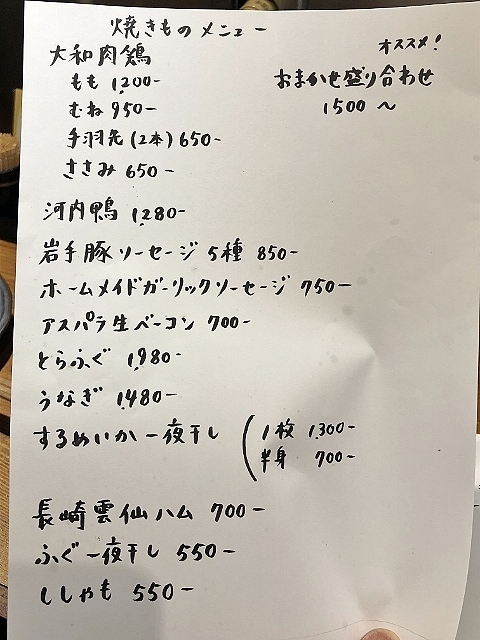 焼きものメニュー
オススメ!
おまかせ盛り合わせ
1500 〜
大和肉鶏
もも 1,200-
むね 950-
手羽先(2本) 650-
ささみ 650-
河内鴨 1,280-
岩手豚ソーセージ 5種 850-
ホームメイドガーリックソーセージ 750-
アスパラ生ベーコン 700-
とらふぐ 1,980-
うなぎ 1,480-
するめいか一夜干し ( 1枚 1,300-
半身 700-
長崎雲仙ハム 700-
ふぐ一夜干し 550-
ししゃも 550-